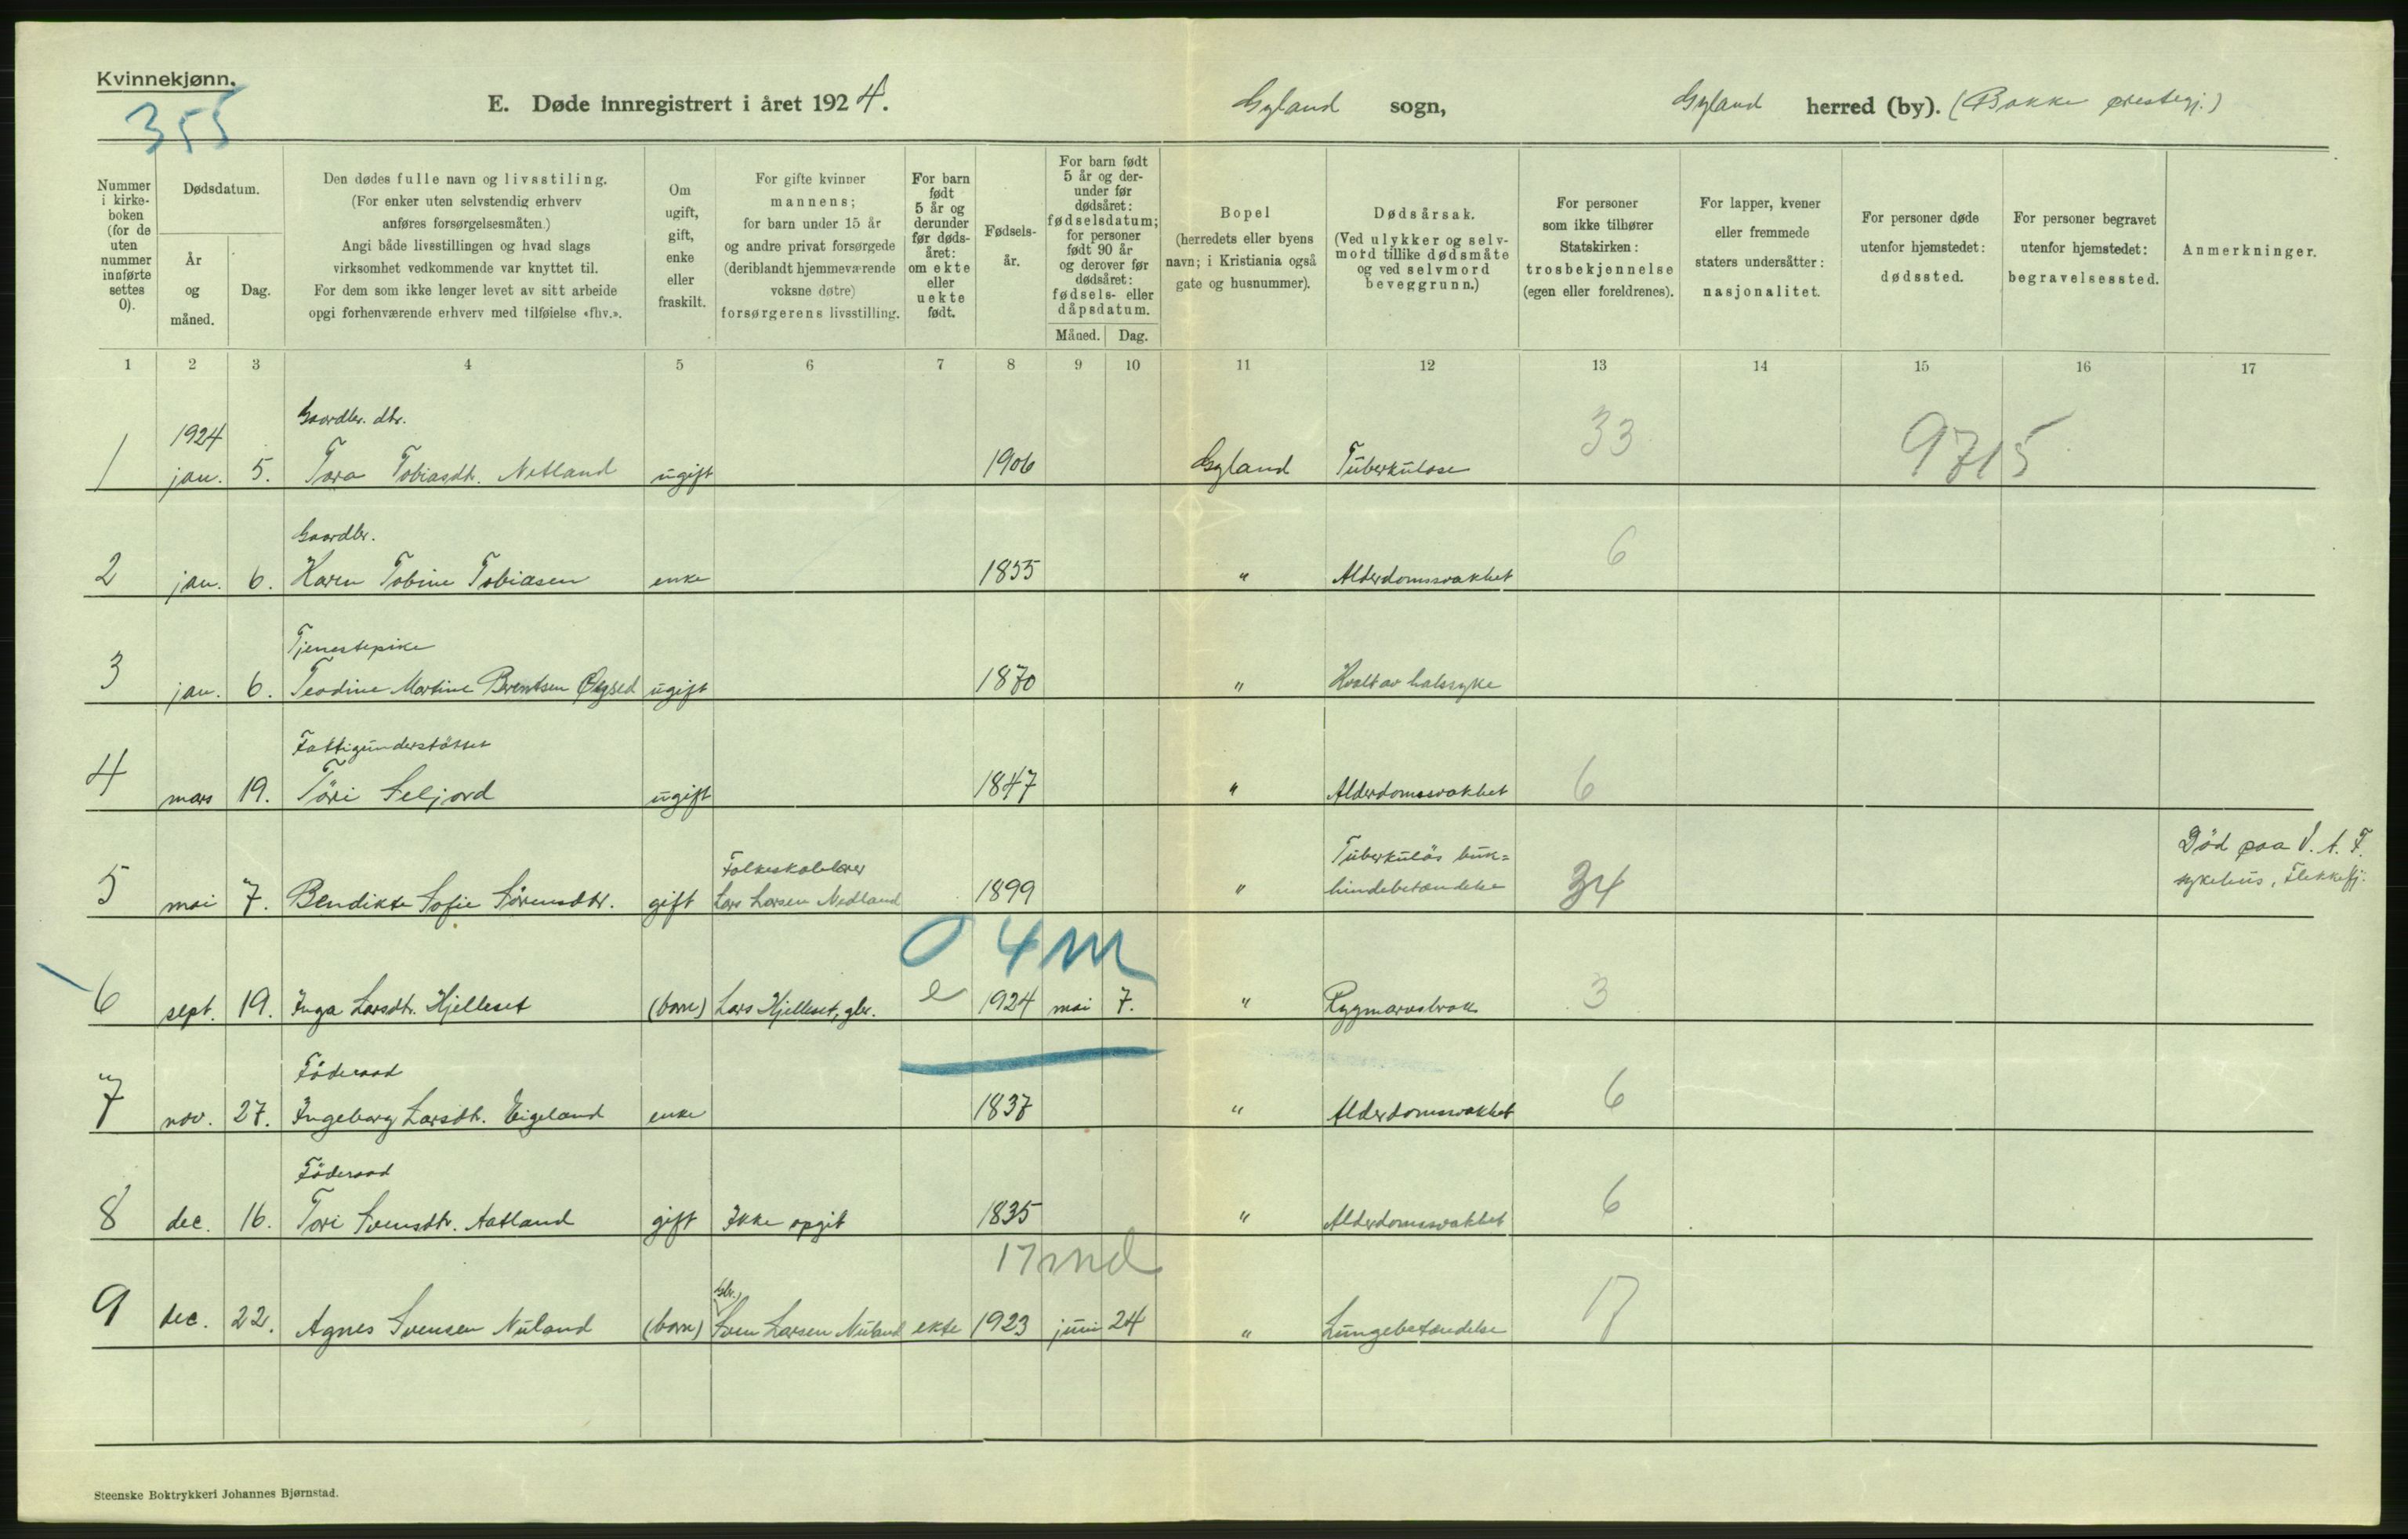 Kvinnekjønn.
355
E. Døde innregistrert i året 1924. Gyland sogn, Gyland herred (by). (Bakke prestegj.)
Nummer i kirke- boken (for de uten nummer innførte settes 0).
Dødsdatum.
År og måned.
Dag.
Den dødes fulle navn og livsstiling.
(For enker uten selvstendig erhverv
anføres forsørgelsesmåten.)
Angi både livsstillingen og hvad slags
virksomhet vedkommende var knyttet til.
For dem som ikke lenger levet av sitt arbeide
opgi forhenværende erhverv med tilføielse «fhv.».
Om ugift, gift, enke eller fraskilt.
For gifte kvinner
mannens;
for barn under 15 år
og andre privat forsørgede
(deriblandt hjemmeværende
voksne døtre)
forsørgerens livsstilling.
For barn født 5 år og derunder før døds- året: om ekte eller uekte født.
Fødsels- år.
For barn født
5 år og der-
under før
dødsåret:
fødselsdatum;
for personer
født 90 år
og derover før
dødsåret:
fødsels- eller
dåpsdatum.
Måned. Dag.
Bopel
(herredets eller byens
navn; i Kristiania også
gate og husnummer).
Dødsårsak.
(Ved ulykker og selv-
mord tillike dødsmåte
og ved selvmord
beveggrunn.)
For personer
som ikke tilhører
Statskirken:
trosbekjennelse
(egen eller foreldrenes).
For lapper, kvener
eller fremmede
staters undersåtter:
nasjonalitet.
For personer døde
utenfor hjemstedet:
dødssted.
For personer begravet
utenfor hjemstedet:
begravelsessted.
Anmerkninger.
1 2 3 4 5 6 7 8 9 10 11 12 13 14 15 16 17
Gaardbr. dtr.
1924
1 jan. 5. Tora Tobiasdtr. Netland ugift 1906 Gyland Tuberkulose 33 9715
Gaardbr.
2 jan. 6. Karen Tobine Tobiasen enke 1855 " Alderdomssvakhet 6
Tjenestepike
3 jan. 6. Teodine Martine Berentsen ugift 1870 " Kvalt av halssyke
Fattigunderstöttet
4 mars 19. Töri Seljord ugift 1847 " Alderdomssvakhet 6
Folkeskolelærer Tuberkulös buk= Död paa V. A. F.
5 mai 7. Bendikte Sofie Sörensdtr. gift Lars Larsen Nedland 1899 " hindebetændelse 34 sykehus, Flekkefj.
0 4 m
6 sept. 19. Inga Larsdtr. Hjelleset (barn) Lars Hjelleset, gbr. e 1924 mai 7. " Rygmarvsbrok 3
Föderaad
7 nov. 27. Ingeborg Larsdtr. Eigeland enke 1837 " Alderdomssvakhet 6
Föderaad
8 dec. 16. Tori Svensdtr. Aatland gift Ikke opgit 1835 " Alderdomssvakhet 6
17 md
Gbr.
9 dec. 22. Agnes Svensen Nuland (barn) Sven Larsen Nuland ekte 1923 juni 24 " Lungebetændelse 17
Steenske Boktrykkeri Johannes Bjørnstad.